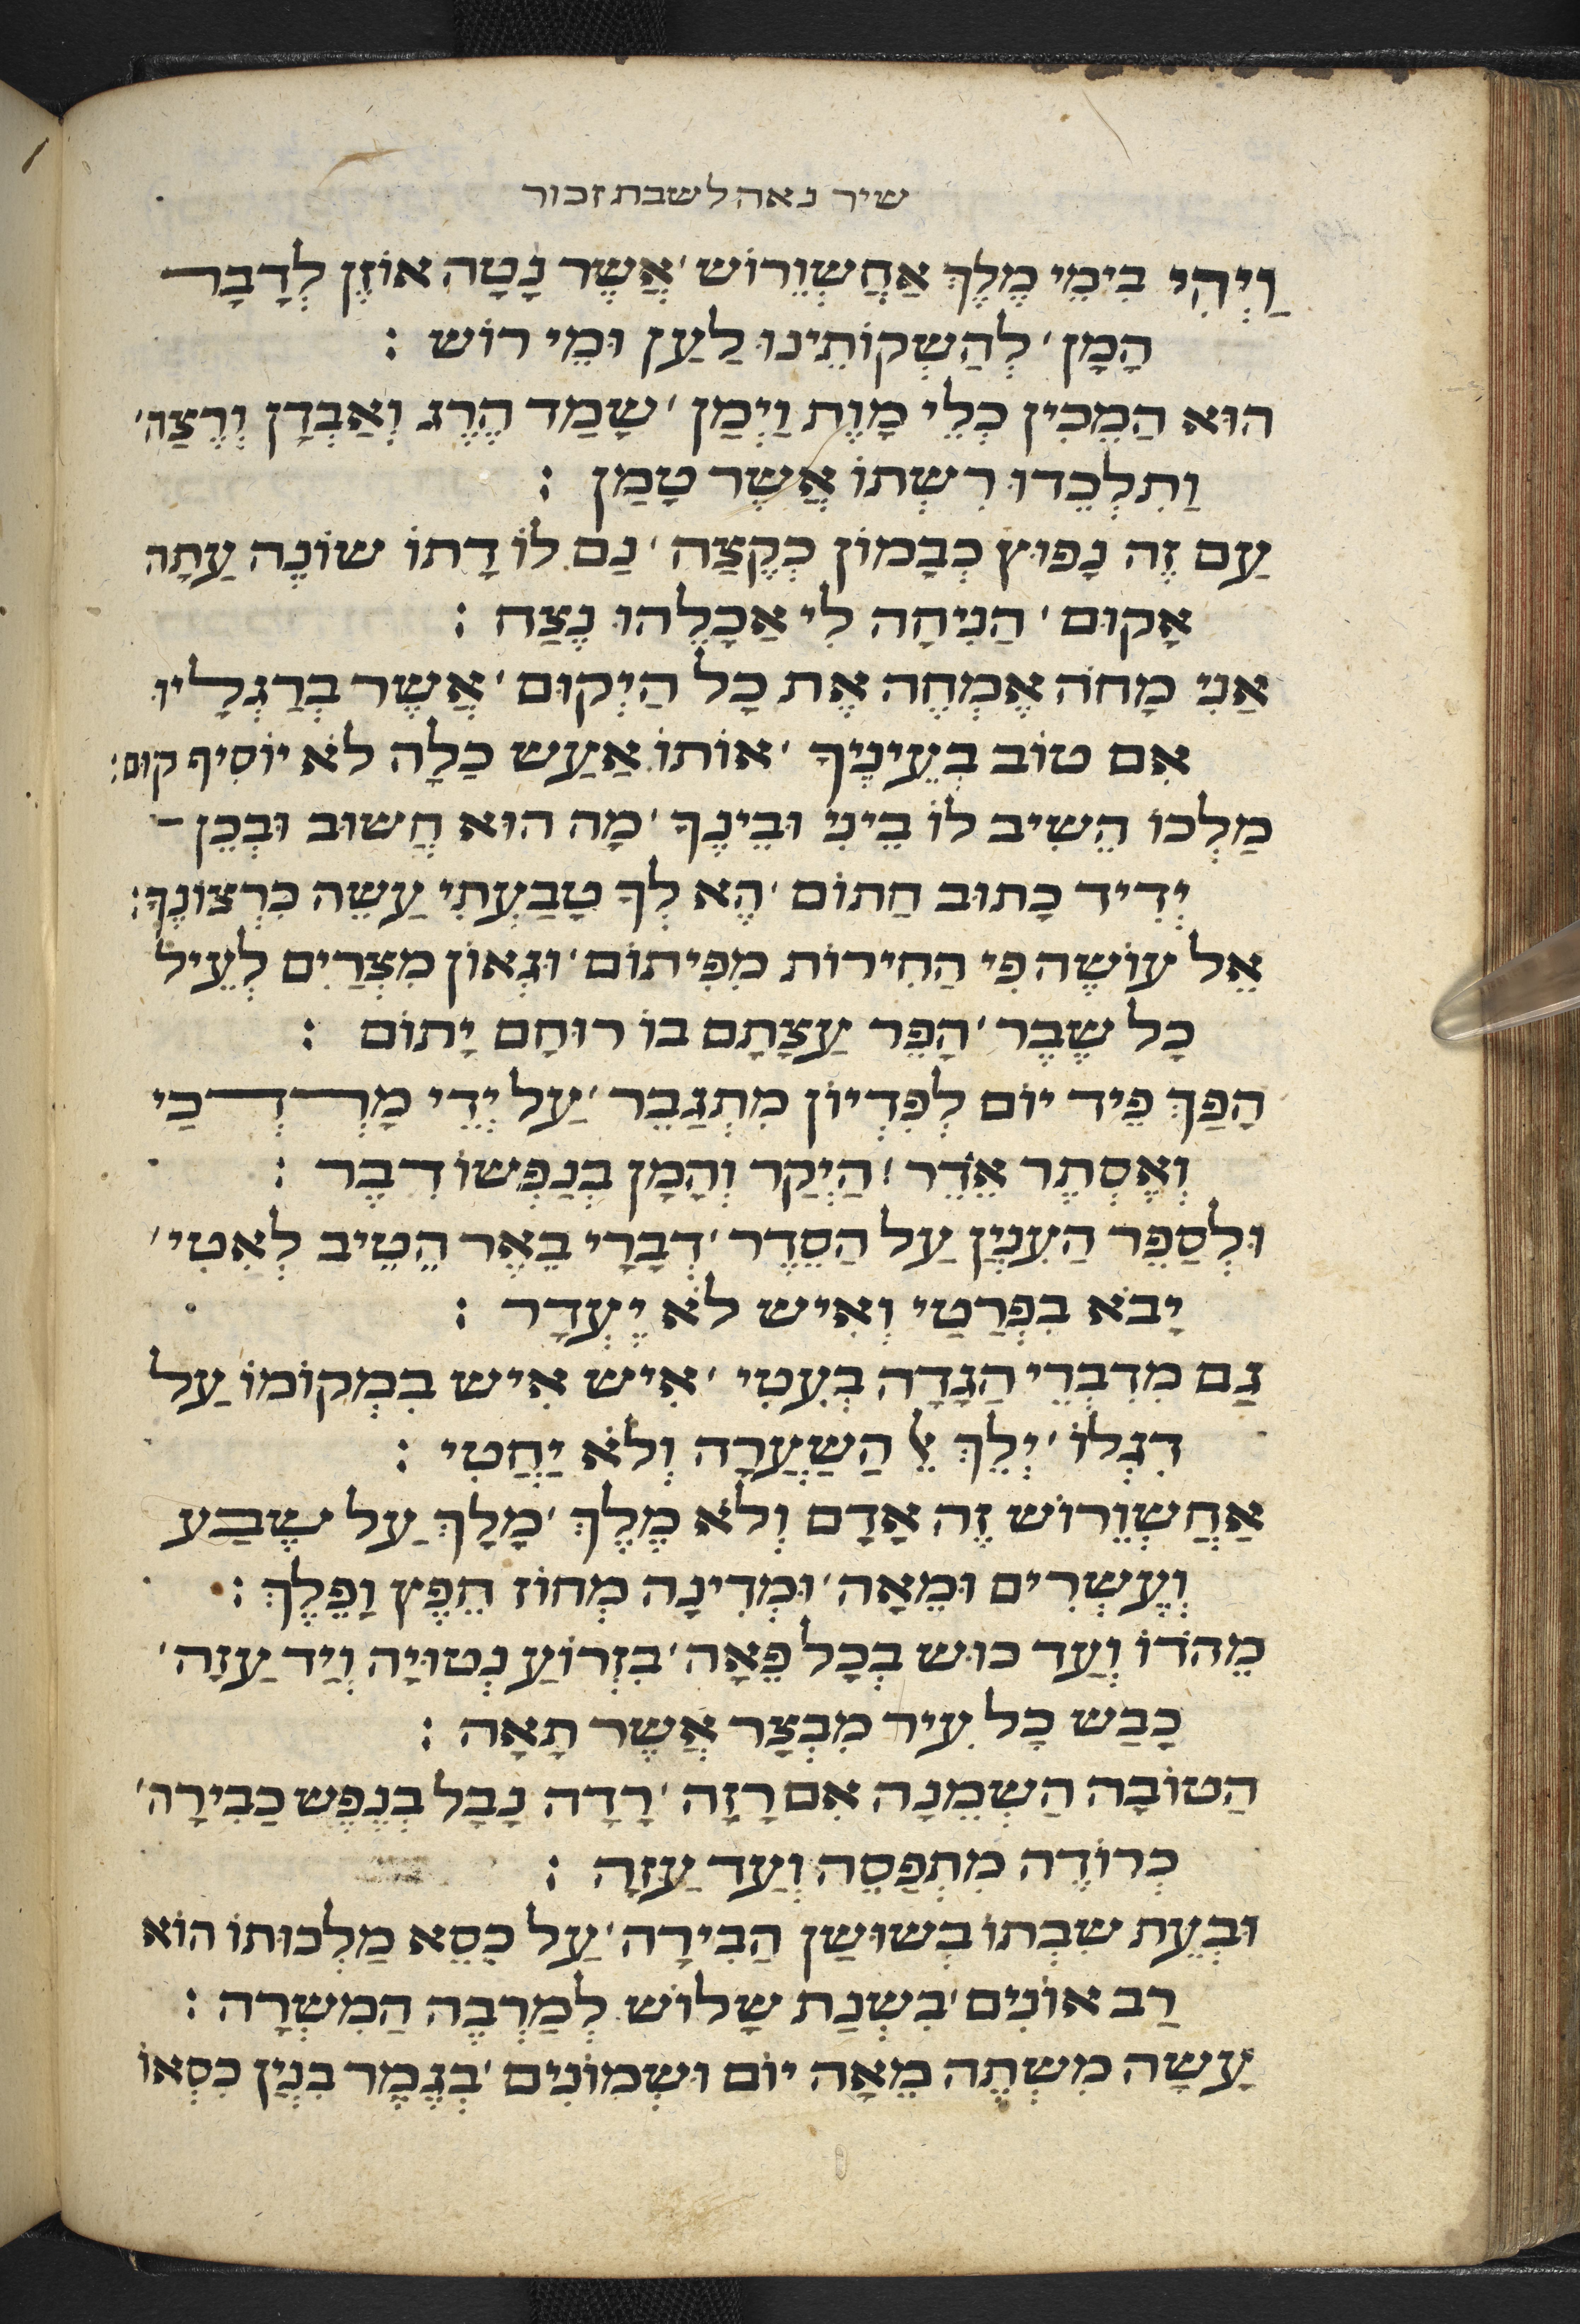 שיר נאה לשבת זכור
וַיְהִי בִימֵי מֶלֶךְ אַחֲשְׁוֵרוֹשׁ׳ אֲשֶׁר נָטָה אוֹזֶן לִדְבַר
הָמָן׳ לְהַשְׁקוֹתֵינוּ לַעַן וּמֵי רוֹשׁ :
הוּא הַמֵכִין כְּלֵי מָוֶת וַיְמַן׳ שָׁמַד הֶרֶג וְאַבְדָן וְרֶצַח׳
וַתִלְכְּדוּ רִשְׁתוֹ אֲשֶׁר טָמַן :
עַם זֶה נָפוּץ כְּבָמוֹן כְּקֶצַח׳ גַם לוֹ דָתוֹ שׁוֹנֶה עַתָה
אָקוּם׳ הַנִיחָה לִי אַכָלֶהוּ נֶצַח :
אַנִי מָחֹה אֶמְחֶה אֶת כָל הַיְקוּם׳ אֲשֶׁר בְרַגְלָיו
אִם טוֹב בְעֵינֶיךָ׳ אוֹתוֹ אַעַשׂ כָלָה לֹא יוֹסִיף קוּם :
מַלְכוֹ הֵשִׁיב לוֹ בֵינִי וּבֵינֶךָ׳ מָה הוּא חָשׁוּב וּבְכֵן
יְדִיד כָתוּב חַתוֹם׳ הֶא לְךָ טָבַעְתִי עַשֵׂה כִרְצוֹנֶךָ :
אֵל עוֹשֶׂה פִי הַחִירוֹת מִפִיתוֹם׳ וּגְאוֹן מִצְרַיִם לְעֵיל
כָל שֶׁבֶר׳ הָפֵר עַצָתָם בוֹ רוּחָם יָתוֹם :
הָפַךְ פִיד יוֹם לְפִדְיוֹן מִתְגַבֵר׳ עַל יְדֵי מָרְדְכַי
וְאֶסְתֶר אֵדֵר׳ הַיְקַר וְהָמָן בְנַפְשׁוֹ דִבֶר :
וּלְסַפֵר הַעִנְיָן עַל הַסֵדֶר׳ דְבָרָי בֵאֶר הֵטֵיב לְאִטִי׳
יָבֹא בִפְרַטַי וְאִישׁ לֹא יֶעְדָר :
גַם מִדִבְרֵי הַגָדָה בְעִטִי׳ אִישׁ אִישׁ בִמְקוֹמוֹ עַל
דִגְלוֹ׳ יְלֵךְ אֶל הַשַׂעֲרָה וְלֹא יַחֲטִי :
אַחֲשְׁוֵרוֹשׁ זֶה אָדָם וְלֹא מֶלֶךְ׳ מָלָךְ עַל שֶׁבַע
וְעֶשְׂרִים וּמֵאָה׳ וּמְדִינָה מְחוֹז חֵפֶץ וָפֶלֶךְ :
מֵהֹדוֹ וְעַד כוּשׁ בְכָל פֵאָה׳ בִזְרוֹעַ נְטוּיָה וְיַד עַזָה׳
כָבַשׁ כָל עִיר מִבְצָר אֲשֶׁר תָאָה :
הַטוֹבָה הַשְׁמֵנָה אִם רָזָה׳ רָדָה נָבָל בְנֶפֶשׁ כַבִירָה׳
כְרוֹדֶה מִתִפְסֵה וְעַד עַזָה :
וּבְעֵת שִׁבְתוֹ בְשׁוּשַׁן הַבִירָה׳ עַל כִסֵא מַלְכוּתוֹ הוֹא
רַב אוֹנִים׳ בִשְׁנַת שָׁלוֹשׁ לְמַרְבֶה הַמִשְׂרָה :
עָשָׂה מִשְׁתֶה מֵאָה יוֹם וּשְׁמוֹנִים׳ בְגֶמֶר בִנְיַן כִסְאוֹ